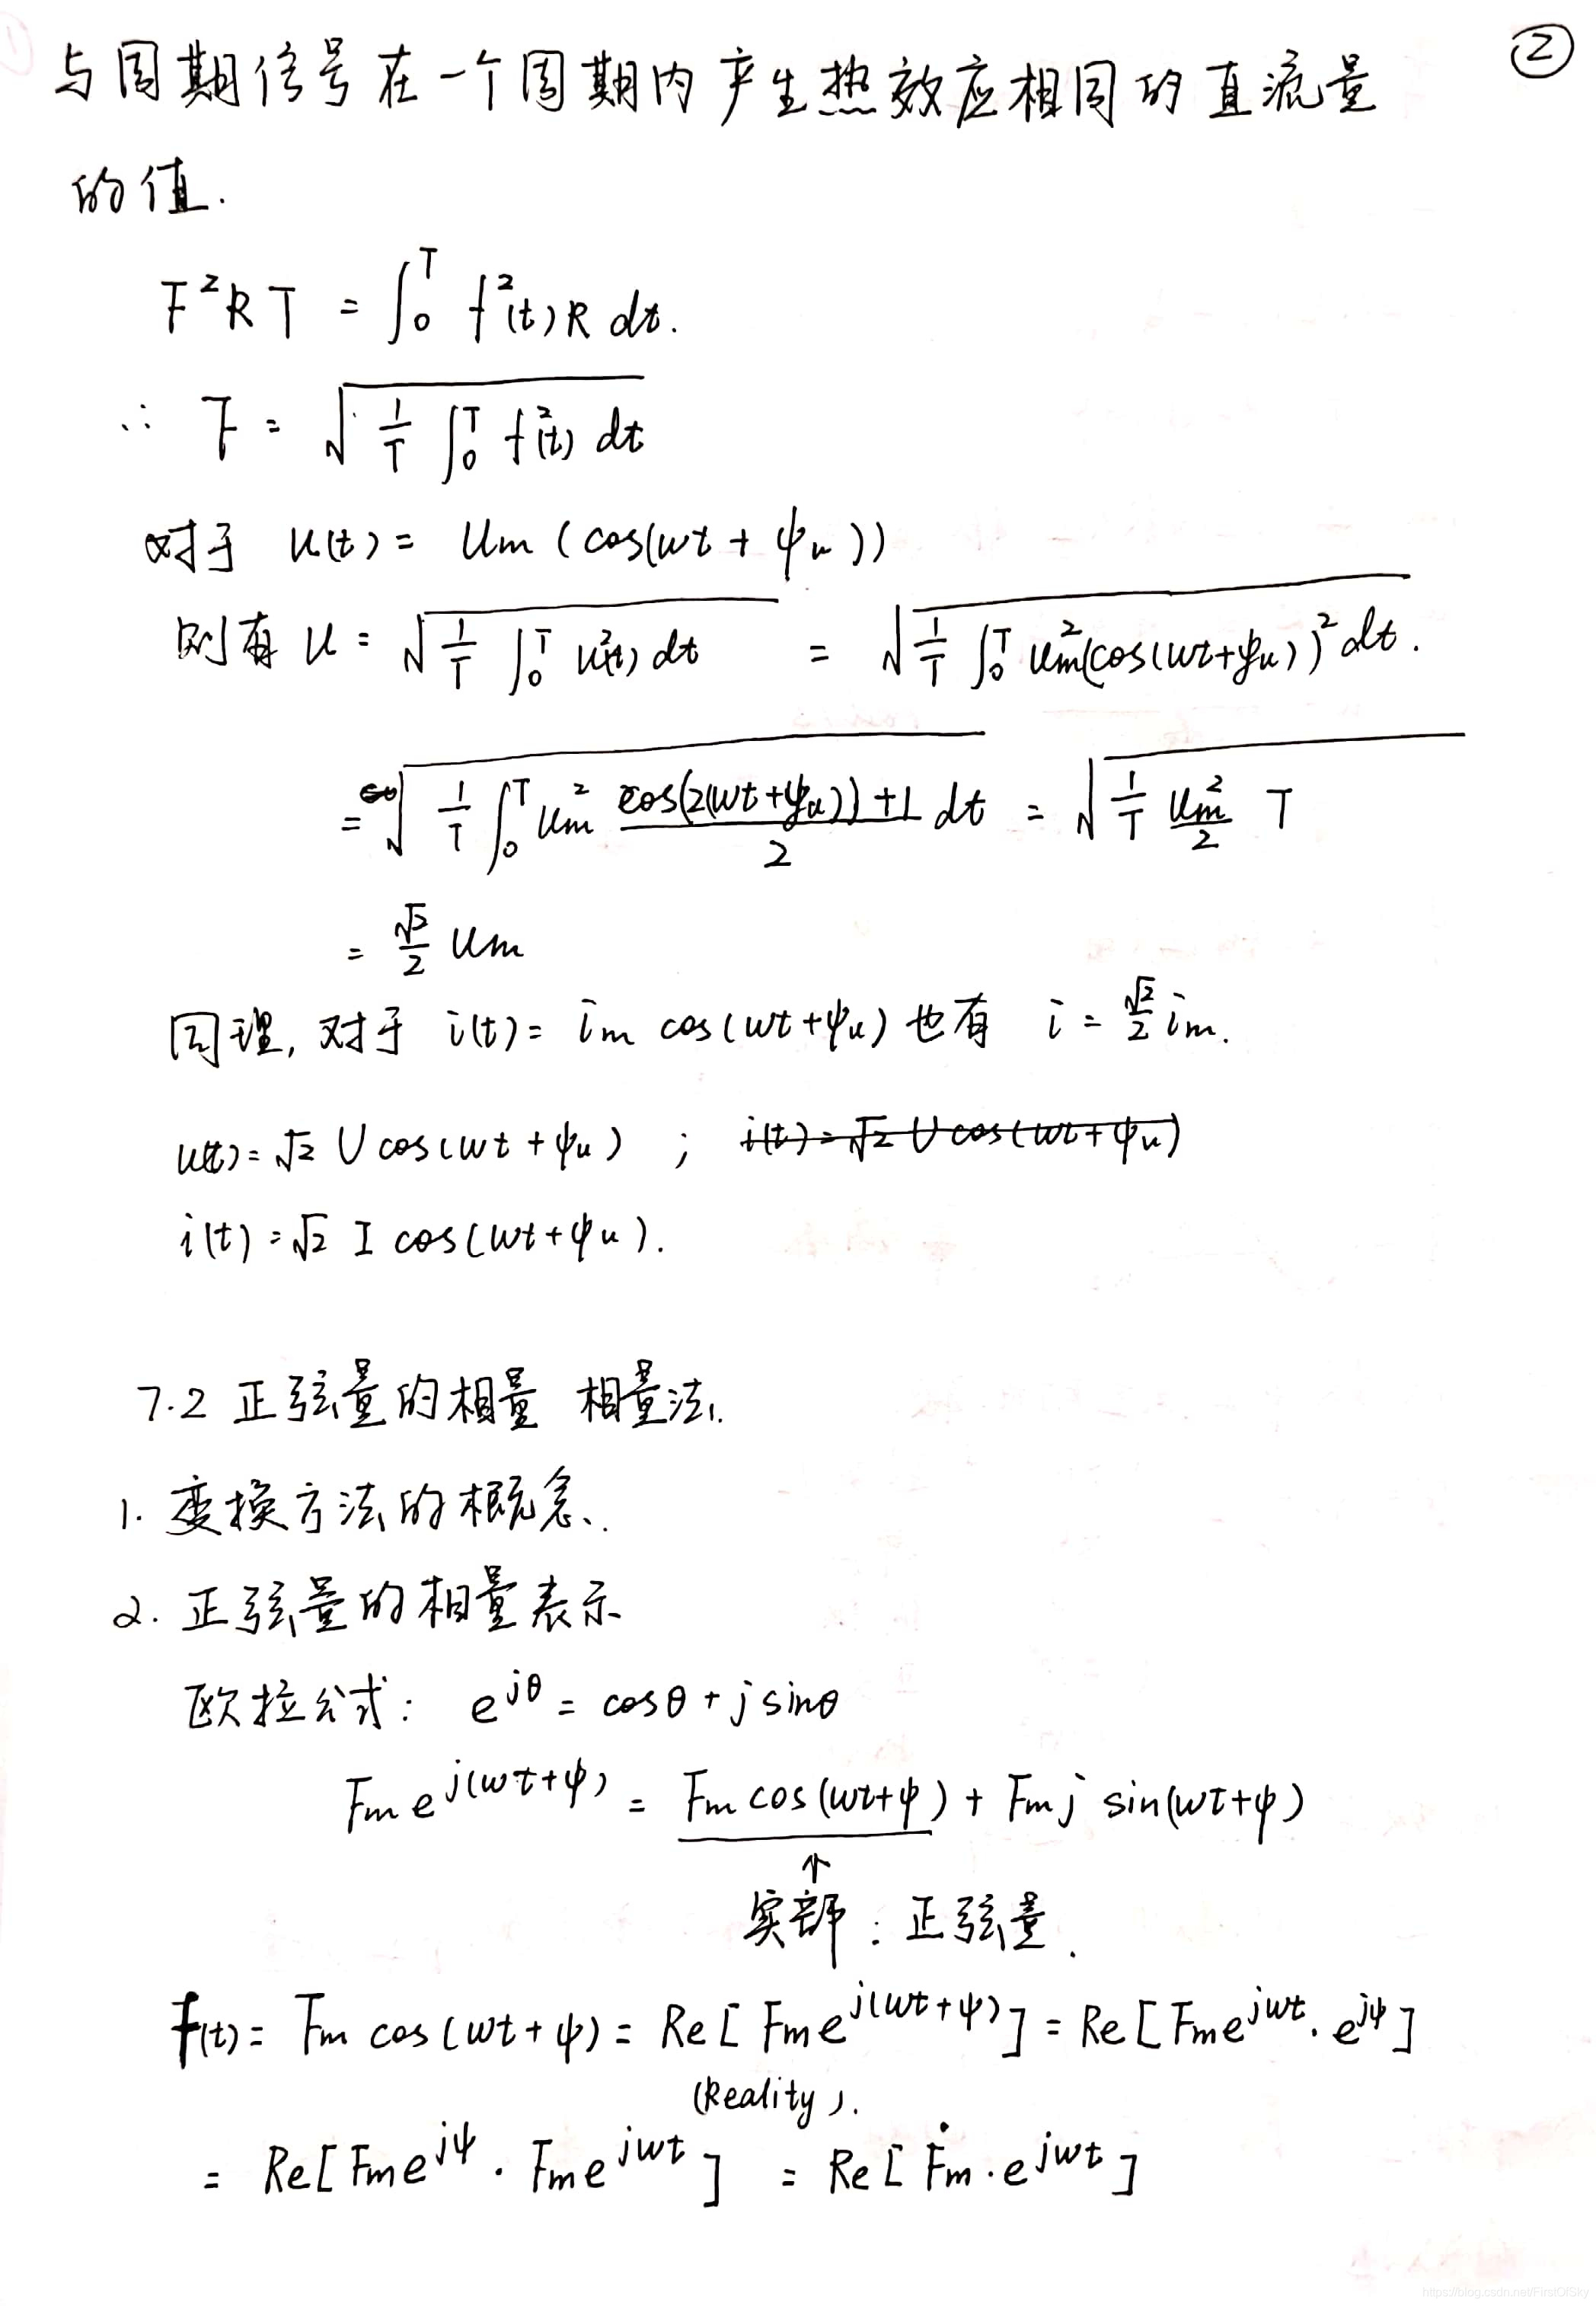 ②
与周期信号在一个周期内产生热效应相同的直流量
的值.
F²RT = ∫₀ᵀ f²(t) R dt.
∴ F = √(1/T ∫₀ᵀ f²(t) dt)
对于 u(t) = Um (cos(wt + ψu))
则有 U = √(1/T ∫₀ᵀ u²(t) dt) = √(1/T ∫₀ᵀ Um²(cos(wt+ψu))² dt).
= √(1/T ∫₀ᵀ Um² (cos(2(wt+ψu))+1)/2 dt) = √(1/T Um²/2 T)
= √2/2 Um
同理, 对于 i(t) = im cos(wt+ψu) 也有 i = √2/2 im.
u(t) = √2 U cos(wt + ψu) ; i(t) = √2 U cos(wt + ψu)
i(t) = √2 I cos(wt+ψu).
7.2 正弦量的相量 相量法.
1. 变换方法的概念.
2. 正弦量的相量表示
欧拉公式: e^{jθ} = cosθ + j sinθ
Fm e^{j(wt+ψ)} = Fm cos(wt+ψ) + Fm j sin(wt+ψ)
↑
实部 : 正弦量.
f(t) = Fm cos(wt+ψ) = Re[Fm e^{j(wt+ψ)}] = Re[Fm e^{jwt} · e^{jψ}]
(Reality).
= Re[Fm e^{jψ} · Fm e^{jwt}] = Re[Ḟm · e^{jwt}]
https://blog.csdn.net/FirstOfSky